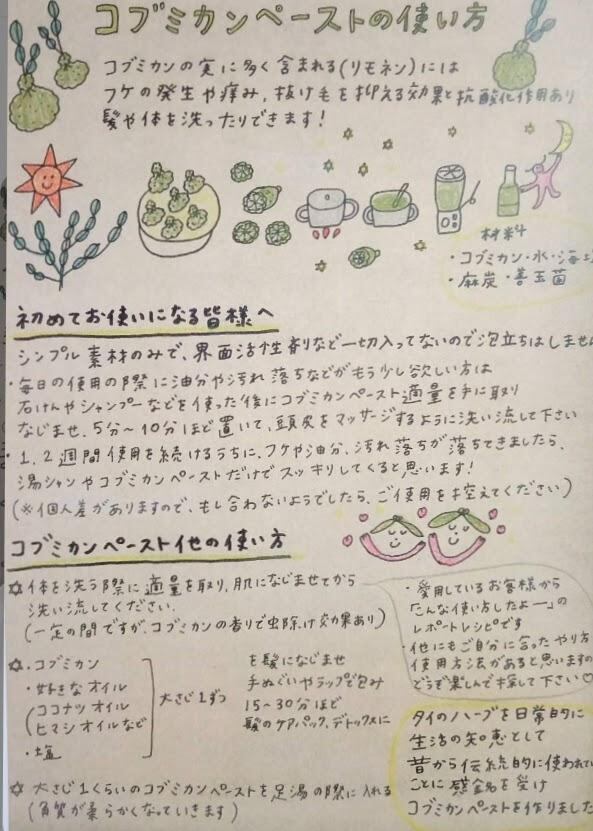 コブミカンペーストの使い方
コブミカンの実に多く含まれる(リモネン)には
フケの発生や痒み、抜け毛を抑える効果と抗酸化作用あり
髪や体を洗ったりできます!
材料
・コブミカン・水・海塩
・麻炭・善玉菌
初めてお使いになる皆様へ
シンプル素材のみで、界面活性剤など一切入ってないので泡立ちはしません
・毎日の使用の際に油分や汚れ落ちなどがもう少し欲しい方は
石けんやシャンプーなどを使った後にコブミカンペースト適量を手に取り
なじませ、5分〜10分ほど置いて、頭皮をマッサージするように洗い流して下さい
・1、2週間使用を続けるうちに、フケや油分、汚れ落ちが落ちてきましたら、
湯シャンやコブミカンペーストだけでスッキリしてくると思います!
(※個人差がありますので、もし合わないようでしたら、ご使用を控えてください)
コブミカンペースト他の使い方
✡体を洗う際に適量を取り、肌になじませてから
洗い流してください。
(一定の間ですが、コブミカンの香りで虫除け効果あり)
✡・コブミカン
・好きなオイル
(ココナツオイル
ヒマシオイルなど)
・塩
大さじ1ずつ
を髪になじませ
手ぬぐいやラップで包み
15〜30分ほど
髪のケアパック、デトックスに
✡大さじ1くらいのコブミカンペーストを足湯の際に入れる
(角質が柔らかくなっていきます)
・愛用しているお客様から
「こんな使い方したよー」の
レポートレシピです
・他にもご自分に合ったやり方
使用方法があると思いますの
どうぞ楽しんで探して下さい♡
タイのハーブを日常的に
生活の知恵として
昔から伝統的に使われてい
ことに感銘を受け
コブミカンペーストを作りました